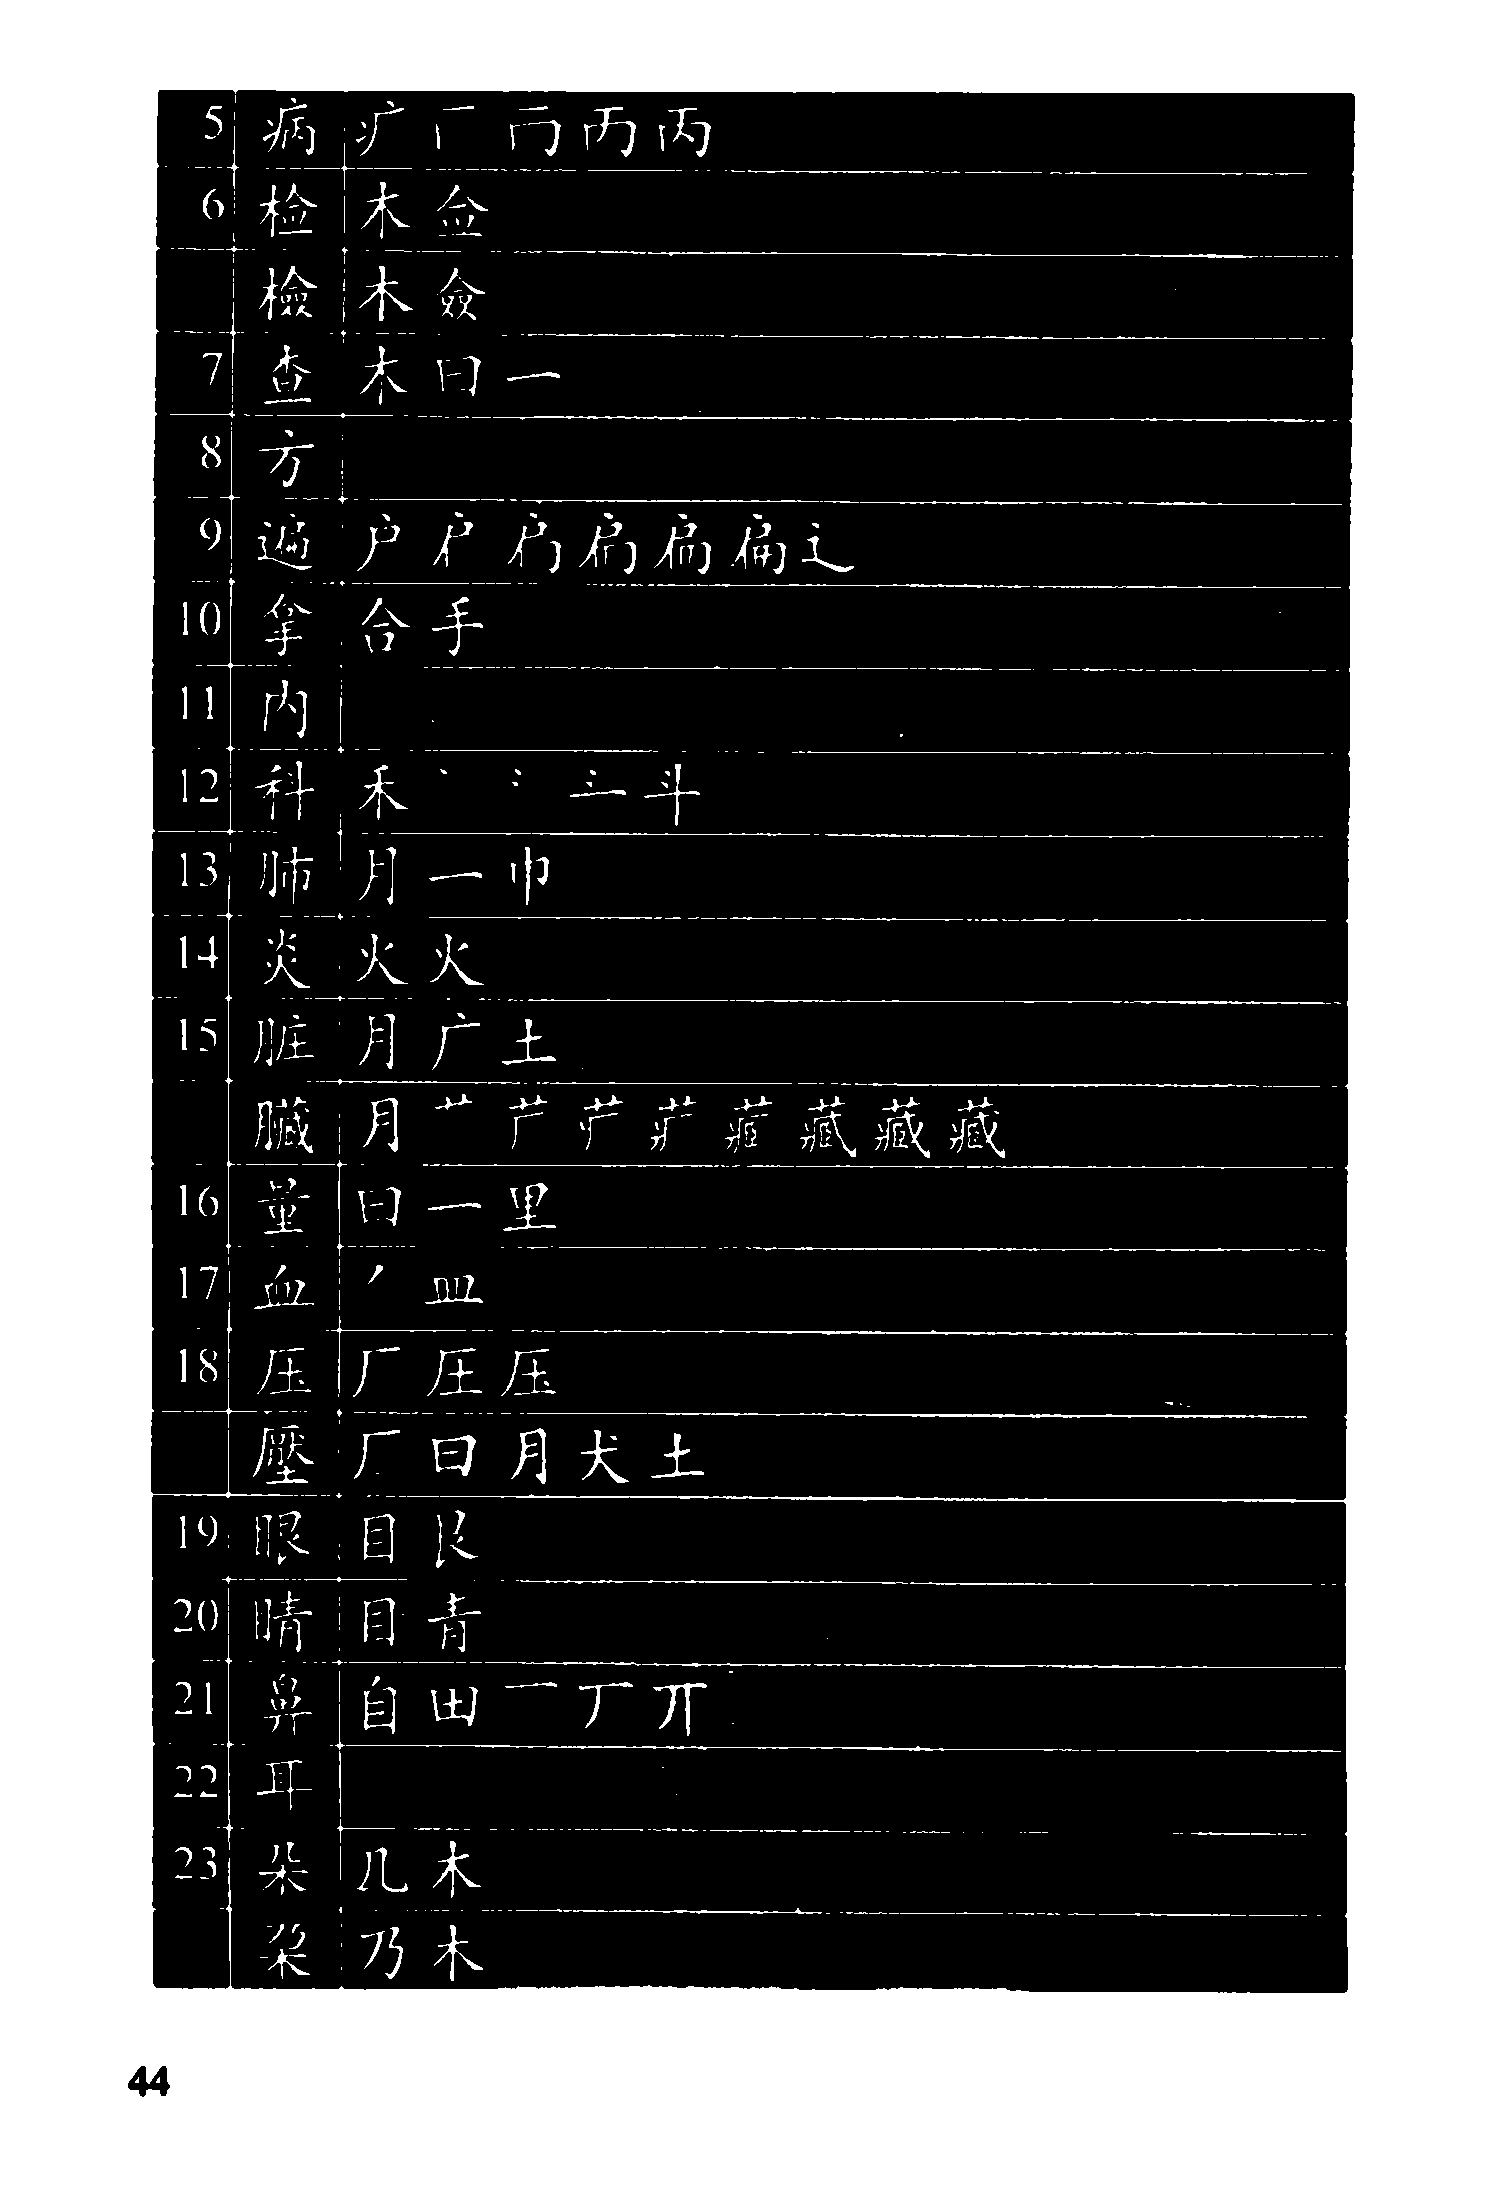 5 病 疒 一 丙 丙
6 检 木 佥
檢 木 僉
7 查 木 日 一
8 方
9 遍 户 扁 辶
10 拿 合 手
11 内
12 科 禾 丶 冫 斗
13 肺 月 一 巾
14 炎 火 火
15 脏 月 广 土
臟 月 艹 藏 藏
16 量 曰 一 里
17 血 丿 皿
18 压 厂 圧 压
壓 厂 曰 月 犬 土
19 眼 目 艮
20 睛 目 青
21 鼻 自 田 一 丆 丌
22 耳
23 朵 几 木
朶 乃 木
44